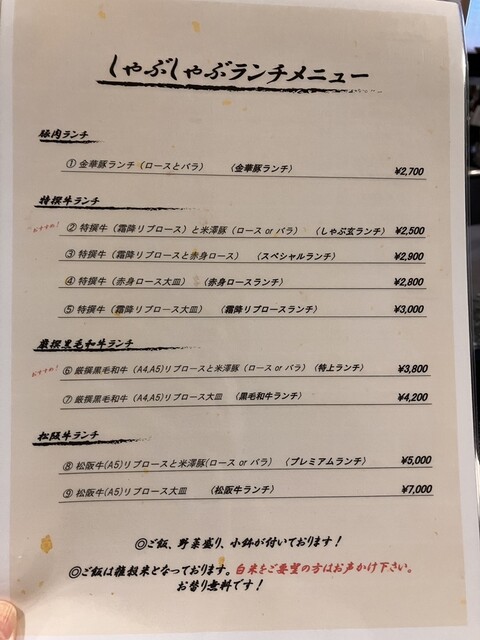 しゃぶしゃぶランチメニュー
豚肉ランチ
①金華豚ランチ（ロースとバラ） （金華豚ランチ） ¥2,700
特撰牛ランチ
おすすめ！ ②特撰牛（霜降リブロース）と米澤豚（ロース or バラ） （しゃぶ玄ランチ） ¥2,500
③特撰牛（霜降リブロースと赤身ロース） （スペシャルランチ） ¥2,900
④特撰牛（赤身ロース大皿） （赤身ロースランチ） ¥2,800
⑤特撰牛（霜降リブロース大皿） （霜降リブロースランチ） ¥3,000
厳撰黒毛和牛ランチ
おすすめ！ ⑥厳撰黒毛和牛（A4,A5)リブロースと米澤豚（ロース or バラ） （特上ランチ） ¥3,800
⑦厳撰黒毛和牛（A4,A5)リブロース大皿 （黒毛和牛ランチ） ¥4,200
松阪牛ランチ
⑧松阪牛(A5)リブロースと米澤豚(ロース or バラ) （プレミアムランチ） ¥5,000
⑨松阪牛(A5)リブロース大皿 （松阪牛ランチ） ¥7,000
◎ご飯、野菜盛り、小鉢が付いております！
◎ご飯は雑穀米となっております。白米をご要望の方はお声かけ下さい。
お替り無料です！